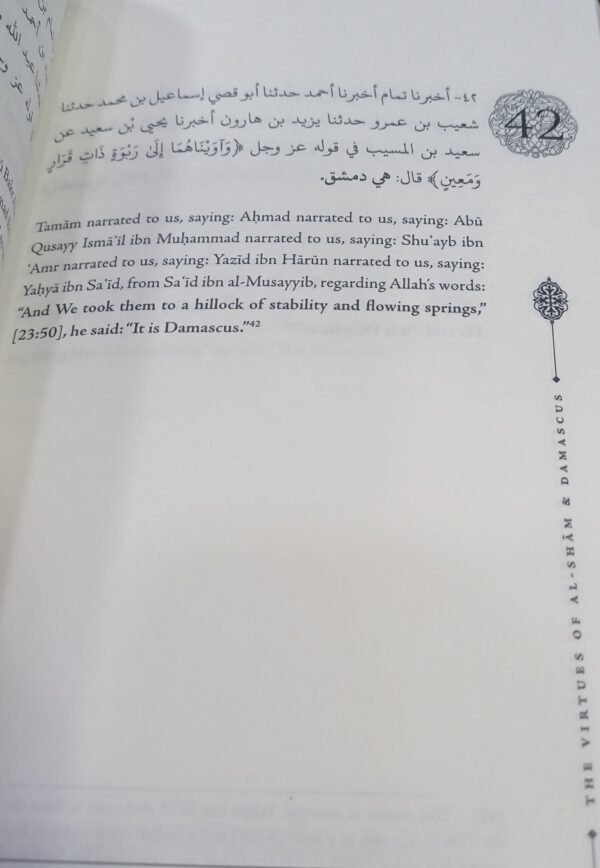 42
٤٢- أخبرنا تمام أخبرنا أحمد حدثنا أبو قصي إسماعيل بن محمد حدثنا
شعيب بن عمرو حدثنا يزيد بن هارون أخبرنا يحيي بْن سعيد عن
سعيد بن المسيب في قوله عز وجل ﴿وَآوَيْنَاهُمَا إِلَىٰ رَبْوَةٍ ذَاتِ قَرَارٍ
وَمَعِينٍ﴾ قال: هي دمشق.
Tamām narrated to us, saying: Aḥmad narrated to us, saying: Abū
Qusayy Ismāʿīl ibn Muḥammad narrated to us, saying: Shuʿayb ibn
ʿAmr narrated to us, saying: Yazīd ibn Hārūn narrated to us, saying:
Yaḥyā ibn Saʿīd, from Saʿīd ibn al-Musayyib, regarding Allah's words:
“And We took them to a hillock of stability and flowing springs,”
[23:50], he said: “It is Damascus.”⁴²
THE VIRTUES OF AL-SHĀM & DAMASCUS